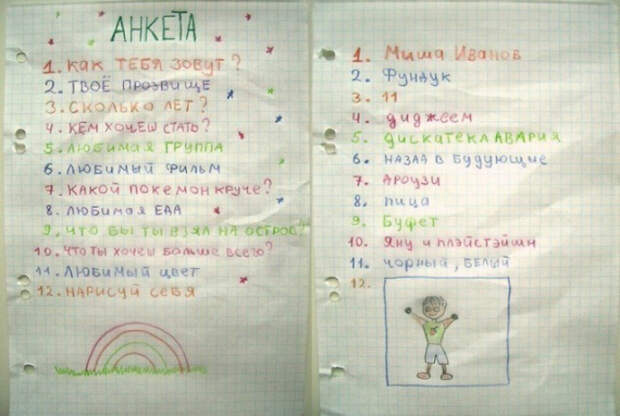 АНКЕТА
1. КАК ТЕБЯ ЗОВУТ?
2. ТВОЁ ПРОЗВИЩЕ
3. СКОЛЬКО ЛЕТ?
4. КЕМ ХОЧЕШ СТАТЬ?
5. ЛЮБИМАЯ ГРУППА
6. ЛЮБИМЫЙ ФИЛЬМ
7. КАКОЙ ПОКЕМОН КРУЧЕ?
8. ЛЮБИМАЯ ЕДА
9. ЧТО БЫ ТЫ ВЗЯЛ НА ОСТРОВ?
10. ЧТО ТЫ ХОЧЕШ БОЛЬШЕ ВСЕГО?
11. ЛЮБИМЫЙ ЦВЕТ
12. НАРИСУЙ СЕБЯ
1. Миша Иванов
2. Фундук
3. 11
4. диджеем
5. дискатека АВАРИЯ
6. НАЗАД в будующие
7.Ароузи
8. пица
9. Буфет
10. Яну и плэйстэйшн
11. чорный, БЕЛЫЙ
12.